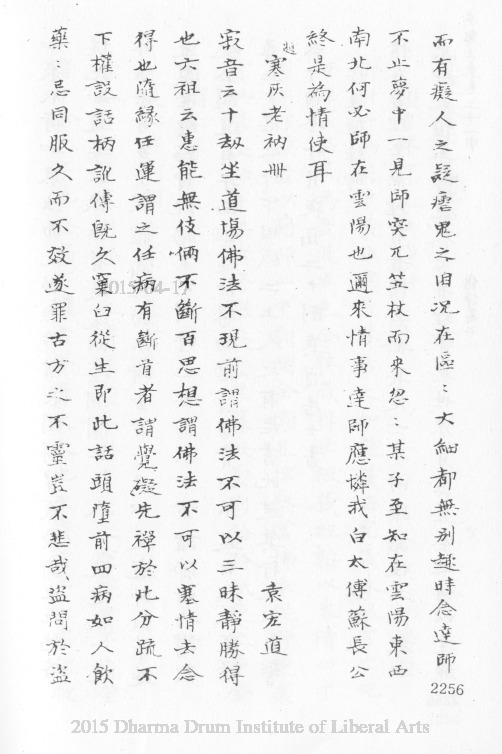 而有癡人之疑瘧鬼之旧况在區：大細都無別趣時念達師
不止夢中一見師突兀笠杖而來忽：某子至知在雲陽東西
南北何必師在雲陽也邇來情事達師應憐我白太傅蘇長公
終是為情使耳
題寒灰老衲冊
袁宏道
寂音云十劫坐道場佛法不現前謂佛法不可以三昧靜勝得
也六祖云惠能無伎倆不斷百思想謂佛法不可以塞情去念
得也隨緣任運謂之任病有斷首者謂覺礙片禪於此分疏不
下權設話柄訛傳既久窠臼從生即此話頭墮前四病如人飲
藥：忌同服久而不效遂罪古方之不靈豈不悲哉盜問於盜
2256
2015-04-17
2015 Dharma Drum Institute of Liberal Arts